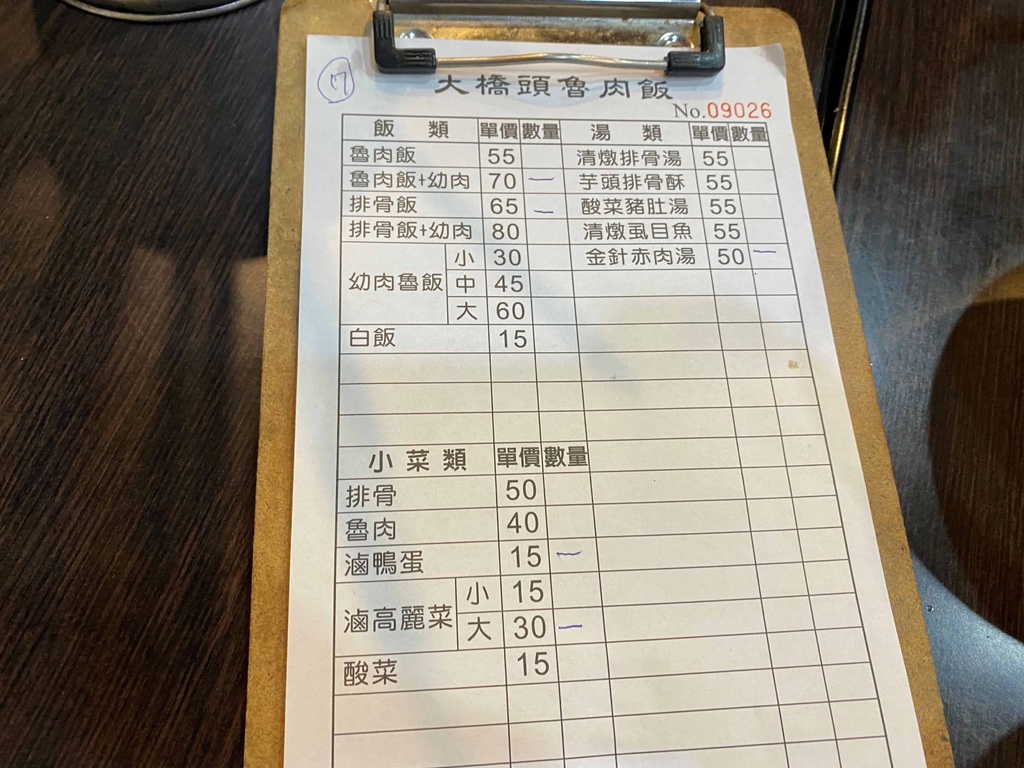 17
大橋頭魯肉飯
No.09026
飯 類 單價 數量 湯 類 單價 數量
魯肉飯 55 清燉排骨湯 55
魯肉飯+幼肉 70 一 芋頭排骨酥 55
排骨飯 65 一 酸菜豬肚湯 55
排骨飯+幼肉 80 清燉虱目魚 55
幼肉魯飯 小 30 金針赤肉湯 50 一
中 45
大 60
白飯 15
小菜類 單價 數量
排骨 50
魯肉 40
滷鴨蛋 15 一
滷高麗菜 小 15
大 30 一
酸菜 15